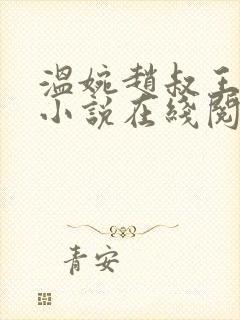 溫婉趙叔王
小說在綫閱
青安